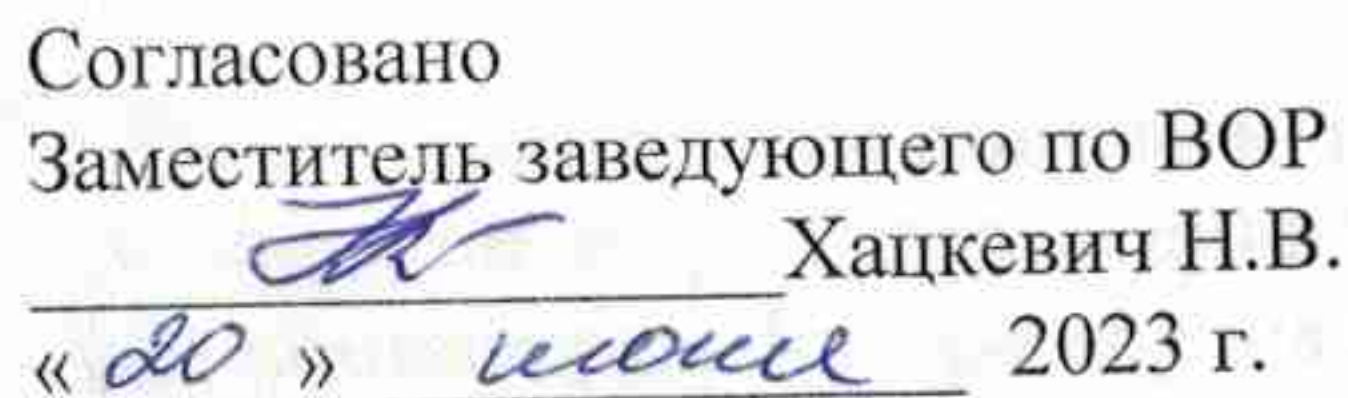 Согласовано
Заместитель заведующего по ВОР
Хацкевич Н.В.
« 20 » 2023 г.